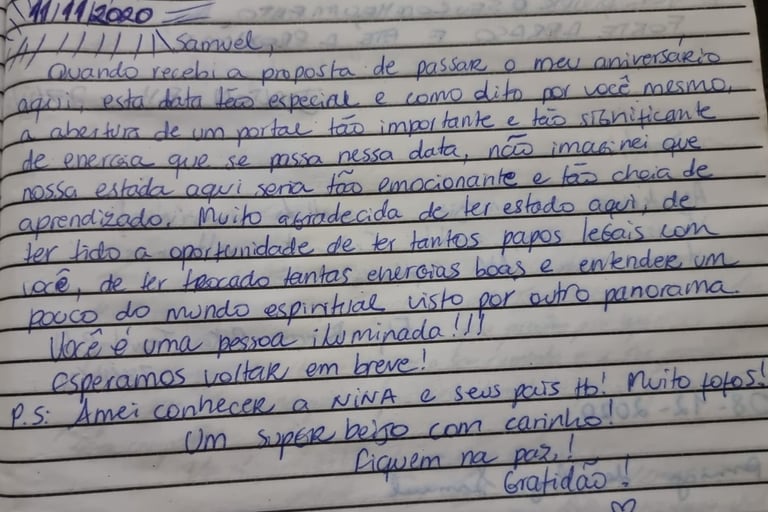 11/11/2020
Samuel,
Quando recebi a proposta de passar o meu aniversário
aqui, esta data tão especial e como dito por você mesmo,
a abertura de um portal tão importante e tão significante
de energia que se passa nessa data, não imaginei que
nossa estada aqui seria tão emocionante e tão cheia de
aprendizado. Muito agradecida de ter estado aqui, de
ter tido a oportunidade de ter tantos papos legais com
você, de ter trocado tantas energias boas e entender um
pouco do mundo espiritual visto por outro panorama.
Você é uma pessoa iluminada!!!
Esperamos voltar em breve!
P.S: Amei conhecer a NINA e seus pais tb! Muito fofos!
Um super beijo com carinho!
Fiquem na paz!
Gratidão!